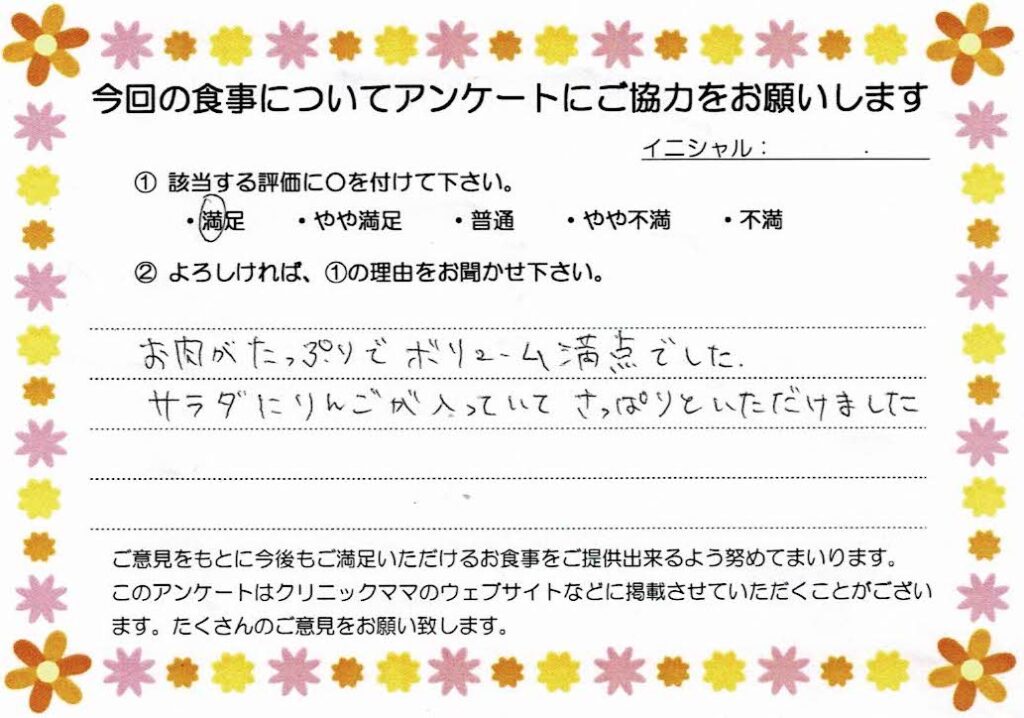 今回の食事についてアンケートにご協力をお願いします
イニシャル：
① 該当する評価に〇を付けて下さい。
・満足 ・やや満足 ・普通 ・やや不満 ・不満
② よろしければ、①の理由をお聞かせ下さい。
お肉がたっぷりでボリューム満点でした.
サラダにりんごが入っていてさっぱりといただけました
ご意見をもとに今後もご満足いただけるお食事をご提供出来るよう努めてまいります。
このアンケートはクリニックママのウェブサイトなどに掲載させていただくことがござい
ます。たくさんのご意見をお願い致します。